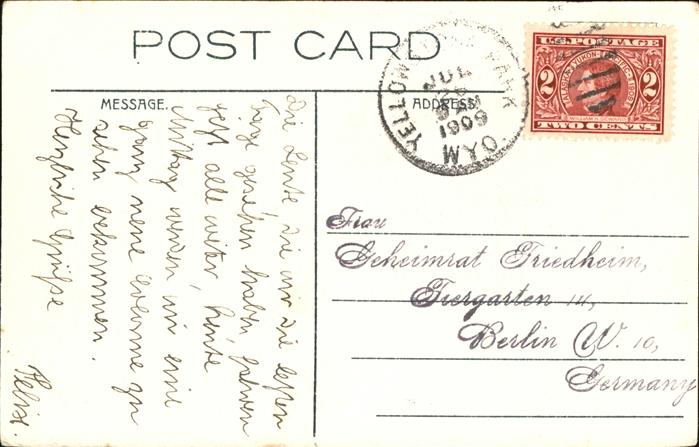 POST CARD
MESSAGE.
ADDRESS.
YELLOW PARK
JUL
AM
1909
WYO
U.S. POSTAGE
ALASKA-YUKON-PACIFIC 1909
WILLIAM H. SEWARD
2 2
TWO CENTS
Die Leute die wir die letzten
Tage gesehen haben fahren
jetzt alle weiter, heute
Mittag werden wir eine
ganz neue Colonne zu
sehen bekommen.
Herzliche Grüße
Frau
Geheimrat Friedheim,
Tiergarten 14,
Berlin W. 10,
Germany